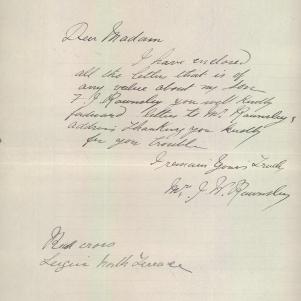 Dear Madam
I have enclosed
all the letter that is of
any value about my son
F. J. Rawnsley you will kindly
forward letters to Mr Rawnsleys
address thanking you kindly
for you trouble
I remain yours Truly
Mrs J. W. Rawnsley
Red cross
North Terrace